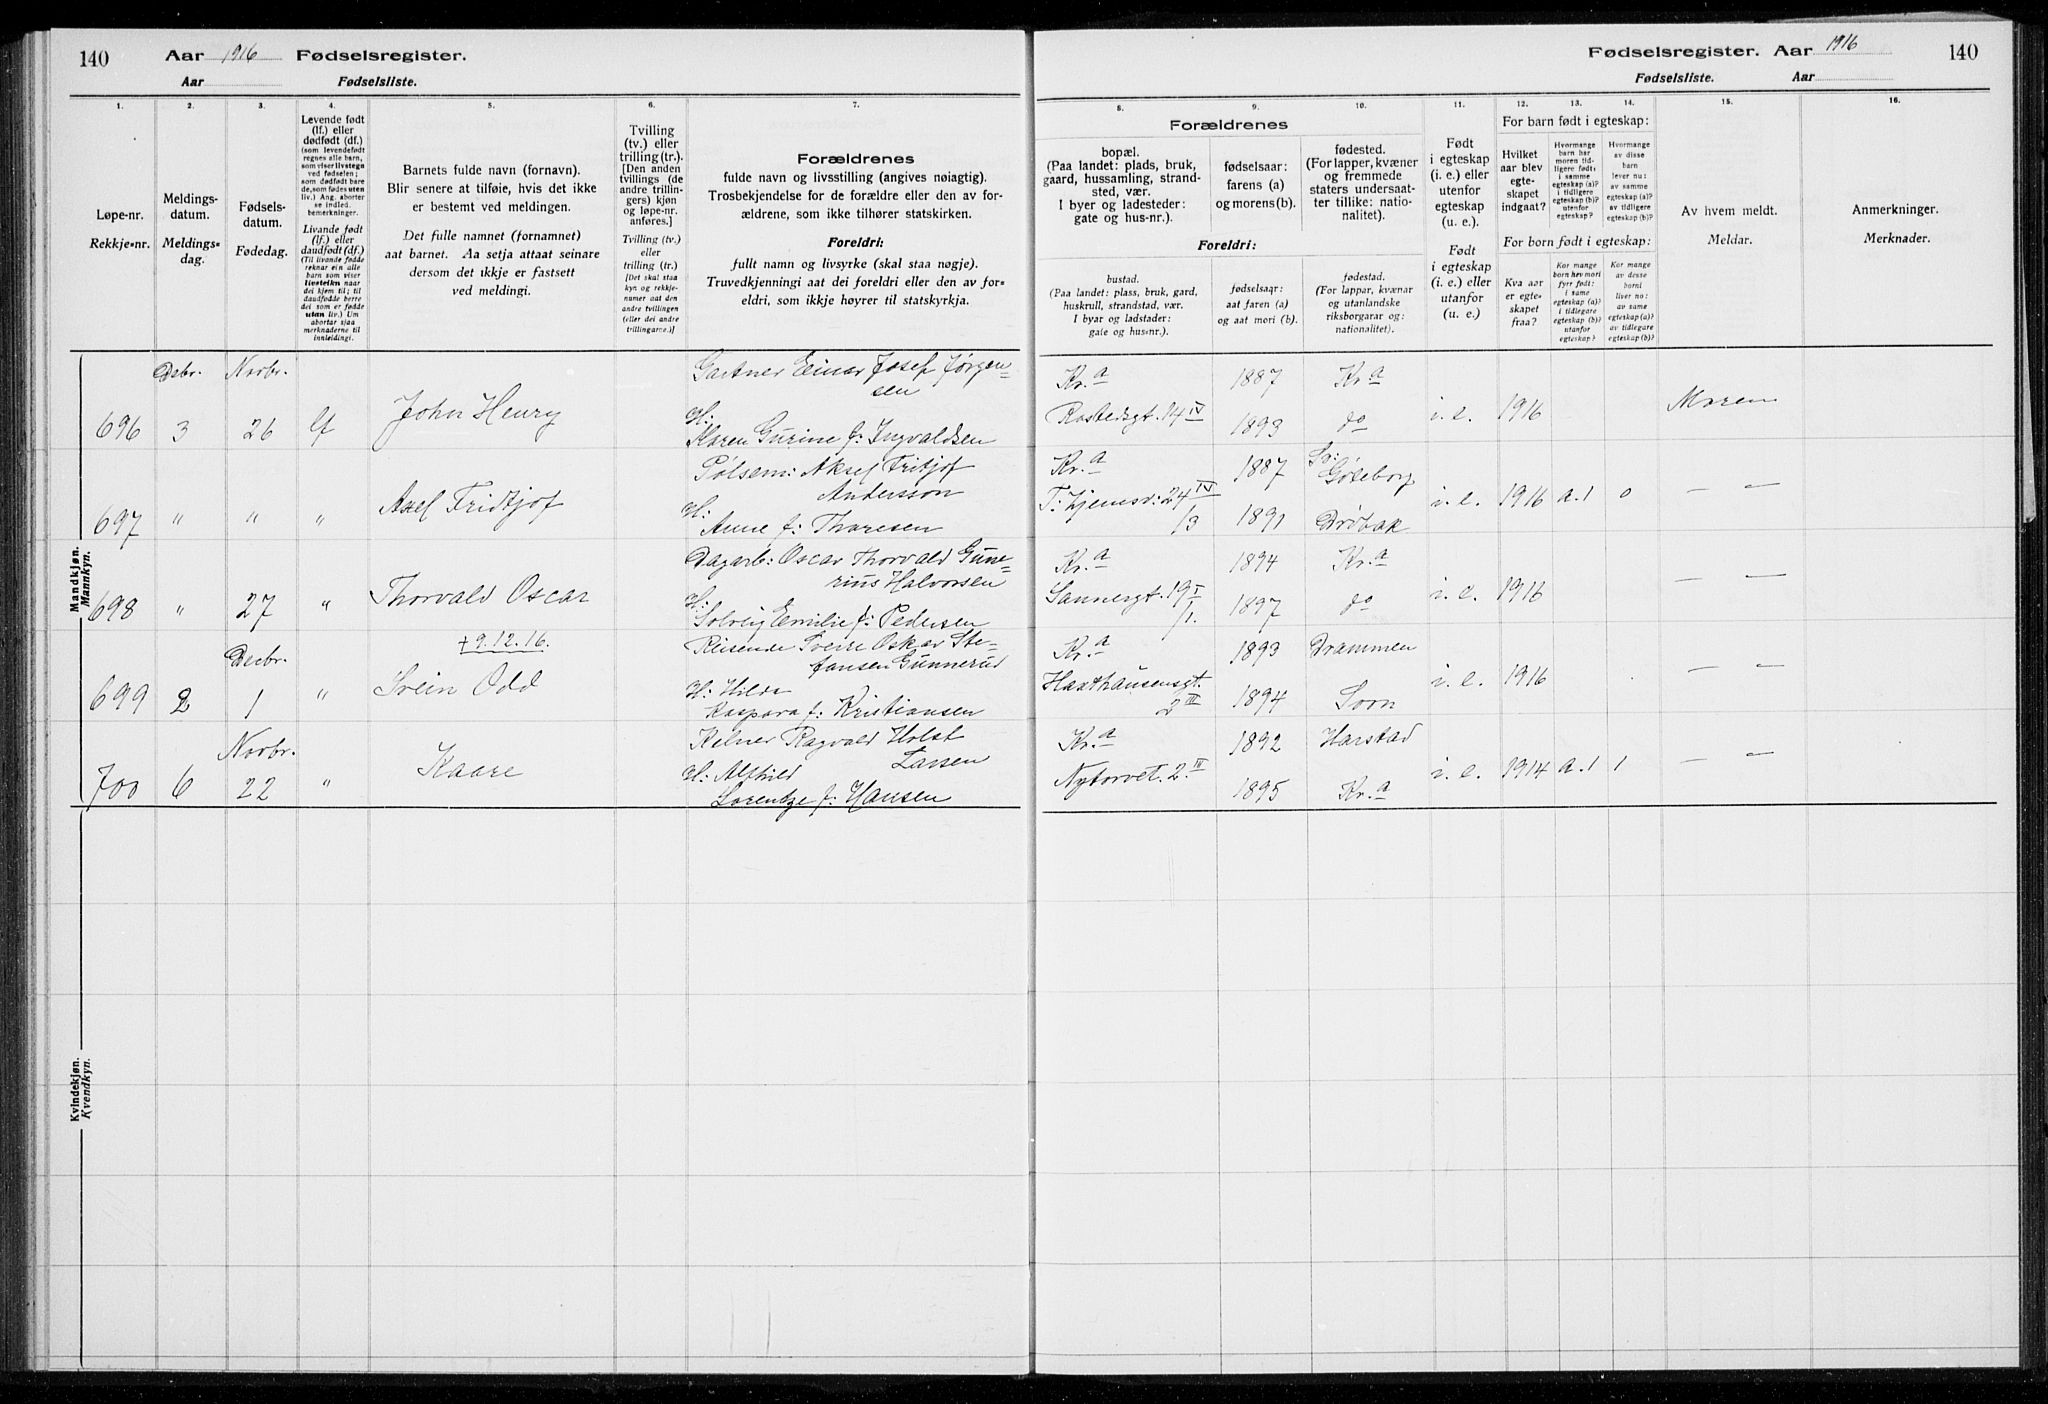 140
Aar 1916 Fødselsregister.
Aar Fødselsliste.
1. 2. 3. 4. 5. 6. 7.
Løpe-nr.
Rekkje-nr.
Meldings-
datum.
Meldings-
dag.
Fødsels-
datum.
Fødedag.
Levende født
(lf.) eller
dødfødt (df.)
(som levendefødt
regnes alle barn,
som viser livstegn
ved fødselen;
som dødfødt bare
de, som fødes uten
liv.) Ang. aborter
se indled.
bemerkninger.
Livande født
(lf.) eller
daudfødt (df.)
(Til livande fødde
reknar ein alle
barn som viser
livsteikn naar
dei kjem til; til
daudfødde berre
dei som er fødde
utan liv.) Um
abortar sjaa
merknaderne til
innleidingi.
Barnets fulde navn (fornavn).
Blir senere at tilføie, hvis det ikke
er bestemt ved meldingen.
Det fulle namnet (fornamnet)
aat barnet. Aa setja attaat seinare
dersom det ikkje er fastsett
ved meldingi.
Tvilling
(tv.) eller
trilling (tr.)
[Den anden
tvillings (de
andre trillin-
gers) kjøn
og løpe-nr.
anføres.]
Tvilling (tv.)
eller
trilling (tr.)
[Det skal staa
kyn og rekkje-
numer aat den
andre tvillingen
(eller dei andre
trillingarne.)]
Forældrenes
fulde navn og livsstilling (angives nøiagtig).
Trosbekjendelse for de forældre eller den av for-
ældrene, som ikke tilhører statskirken.
Foreldri:
fullt namn og livsyrke (skal staa nøgje).
Truvedkjenningi aat dei foreldri eller den av for-
eldri, som ikkje høyrer til statskyrkja.
Mandkjøn.
Mannkyn.
Debr. Novbr. Gartner Einar Josef Jørgen-
sen
696 3 26 lf John Henry H:
Karen Gurine f: Ingvaldsen
Pølsem: Aksel Fritjof
Andersson
697 " " " Axel Fridtjof H:
Anne f: Thoresen
Dagarb: Oscar Thorvald Gune-
rius Halvorsen
698 " 27 " Thorvald Oscar H:
Solveig Emilie f: Pedersen
Decbr. + 9.12.16. Reisende Sverre Oskar Ste-
fansen Gunnerud
699 2 1 " Svein Odd H: Hilda
Kaspara f: Kristiansen
Novbr. Kelner Ragvald Holst
Larsen
700 6 22 " Kaare H: Alfhild
Lorentze f: Hansen
Kvindekjøn.
Kvendkyn.
Fødselsregister. Aar 1916 140
Fødselsliste. Aar
8. 9. 10. 11. 12. 13. 14. 15. 16.
Forældrenes
bopæl.
(Paa landet: plads, bruk,
gaard, hussamling, strand-
sted, vær.
I byer og ladesteder:
gate og hus-nr.).
fødselsaar:
farens (a)
og morens (b).
fødested.
(For lapper, kvæner
og fremmede
staters undersaat-
ter tillike: natio-
nalitet).
Foreldri:
bustad.
(Paa landet: plass, bruk, gard,
huskrull, strandstad, vær.
I byar og ladstader:
gate og hus-nr.).
fødselsaar:
aat faren (a)
og aat mori (b).
fødestad.
(For lappar, kvænar
og utanlandske
riksborgarar og:
nationalitet).
Født
i egteskap
(i. e.) eller
utenfor
egteskap
(u. e.).
Født
i egteskap
(i. e.) eller
utanfor
(u. e.)
For barn født i egteskap:
Hvilket
aar blev
egte-
skapet
indgaat?
Hvormange
barn har
moren tid-
ligere født:
i samme
egteskap (a)?
i tidligere
egteskap (b)?
utenfor
egteskap?
Hvormange
av disse
barn
lever nu:
av samme
egteskap (a)?
av tidligere
egteskap (b)?
For born født i egteskap:
Kva aar
er egte-
skapet
fraa?
Kor mange
born hev mori
fyrr født:
i same
egteskap (a)?
i tidlegare
egteskap (b)?
utanfor
egteskap?
Kor mange
av desse
borni
liver no:
av same
egteskap (a)?
av tidlegare
egteskap (b)?
Av hvem meldt.
Meldar.
Anmerkninger.
Merknader.
Kr.a 1887 Kr a
Rostedsgt. 14 IV 1893 do i. e. 1916 Moren
Kr.a 1887 Sv: Göteborg
T: hjemsv: 24 IV /3 1891 Drøbak i. e. 1916 a. 1 0 — —
Kr.a 1894 Kr.a
Sannergt. 19 I /1. 1897 do i. e. 1916 — —
Kr.a 1893 Drammen
Haxthausensgt. 2 III 1894 Sorn i. e. 1916 — —
Kr.a 1892 Harstad
Nytorvet. 2. III 1895 Kr.a i. e. 1914 a. 1 1 — —